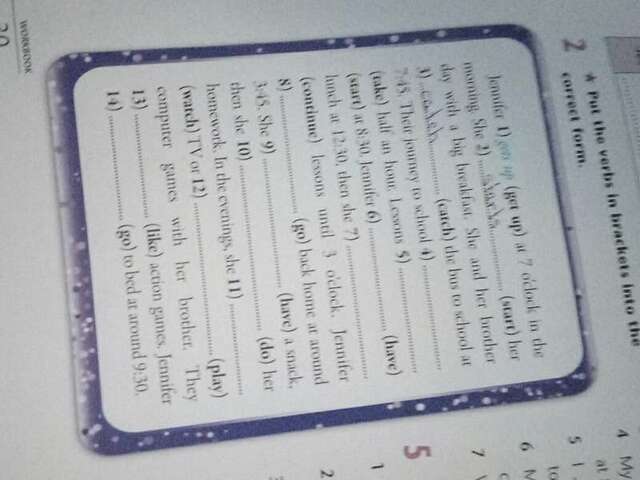 2 ★ Put the verbs in brackets into the
correct form.
Jennifer 1) gets up (get up) at 7 o'clock in the
morning. She 2) starts (start) her
day with a big breakfast. She and her brother
3) ............ (catch) the bus to school at
7:45. Their journey to school 4) ............
(take) half an hour. Lessons 5) ............
(start) at 8:30. Jennifer 6) ............ (have)
lunch at 12:30, then she 7) ............
(continue) lessons until 3 o'clock. Jennifer
8) ............ (go) back home at around
3:45. She 9) ............ (have) a snack,
then she 10) ............ (do) her
homework. In the evenings, she 11) ............
(watch) TV or 12) ............ (play)
computer games with her brother. They
13) ............ (like) action games. Jennifer
14) ............ (go) to bed at around 9:30.
WORKBOOK
4 My
at
5 I
to
6
7
5
1
2